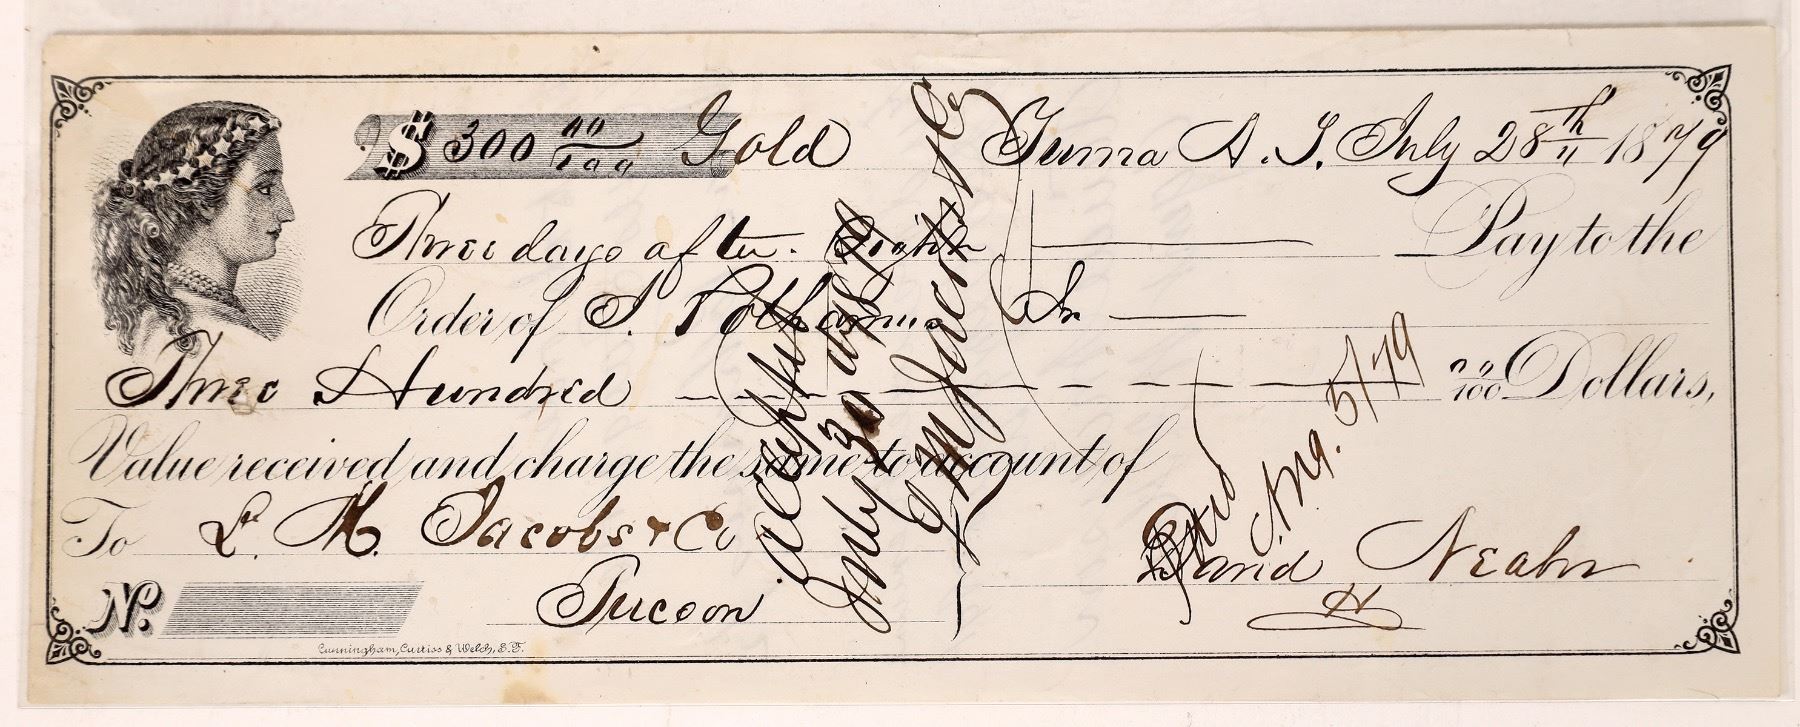 $ 300 00/100 Gold Yuma A. T. July 28th 1879
Three days after Sight Pay to the
Order of I. Polhamus Jr
Three Hundred 00/100 Dollars,
Value received and charge the same to account of
To L. M. Jacobs & Co
Tucson
David Neahr
No.
Cunningham, Curtiss & Welch, S.F.
Accepted
July 30 1879
L M Jacobs & Co
Paid
Aug. 5/79